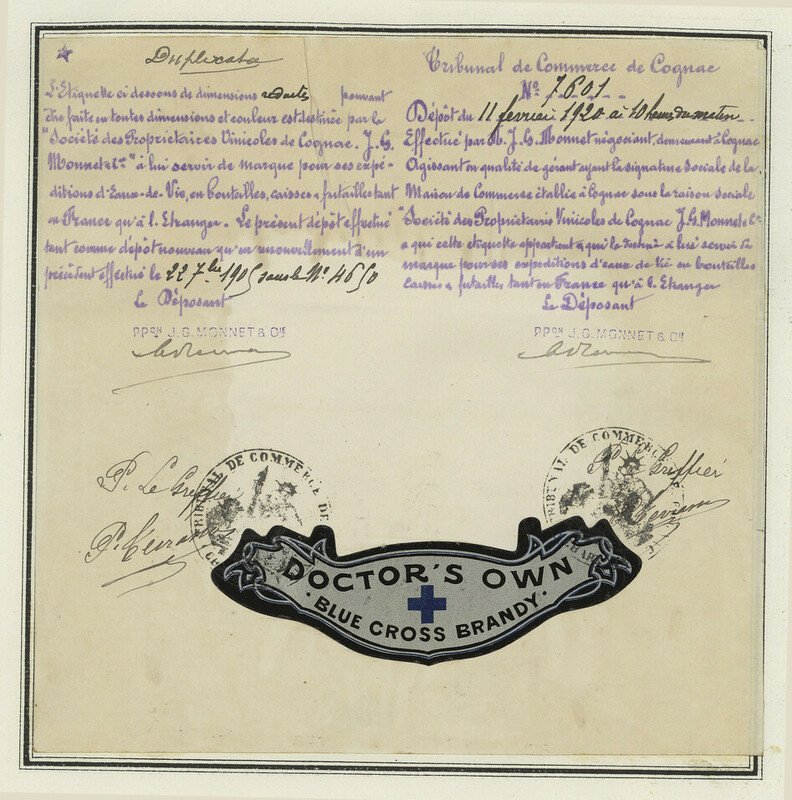 Duplicata
L'Etiquette ci dessous de dimensions réduites pouvant
être faite en toutes dimensions et couleur est destinée par la
"Société des Propriétaires Vinicoles de Cognac. J.G.
Monnet & Cie" à lui servir de marque pour ses expé-
ditions d'Eaux-de-Vie, en bouteilles, caisses & futailles tant
en France qu'à l'Etranger. Le présent dépôt effectué
tant comme dépôt nouveau qu'en renouvellement d'un
précédent effectué le 22 7bre 1905 sous le N° 4650
Le Déposant
PPON J.G. MONNET & CIE
Tribunal de Commerce de Cognac
N° 7601
Dépôt du 11 février 1920 à 10 heures du matin
Effectué par M. J.G. Monnet négociant, demeurant à Cognac
Agissant en qualité de gérant ayant la signature sociale de la
Maison de Commerce établie à Cognac sous la raison sociale
"Société des Propriétaires Vinicoles de Cognac J.G. Monnet & Cie
a qui cette etiquette appartient & qui le destine à lui servir de
marque pour ses expeditions d'eaux de Vie en bouteilles
caisses & futailles tant en France qu'à l'Etranger
Le Déposant
PPON J.G. MONNET & CIE
P. Le Greffier
TRIBUNAL DE COMMERCE DE
P. Le Greffier
TRIBUNAL DE COMMERCE
DOCTOR'S OWN
· BLUE CROSS BRANDY ·